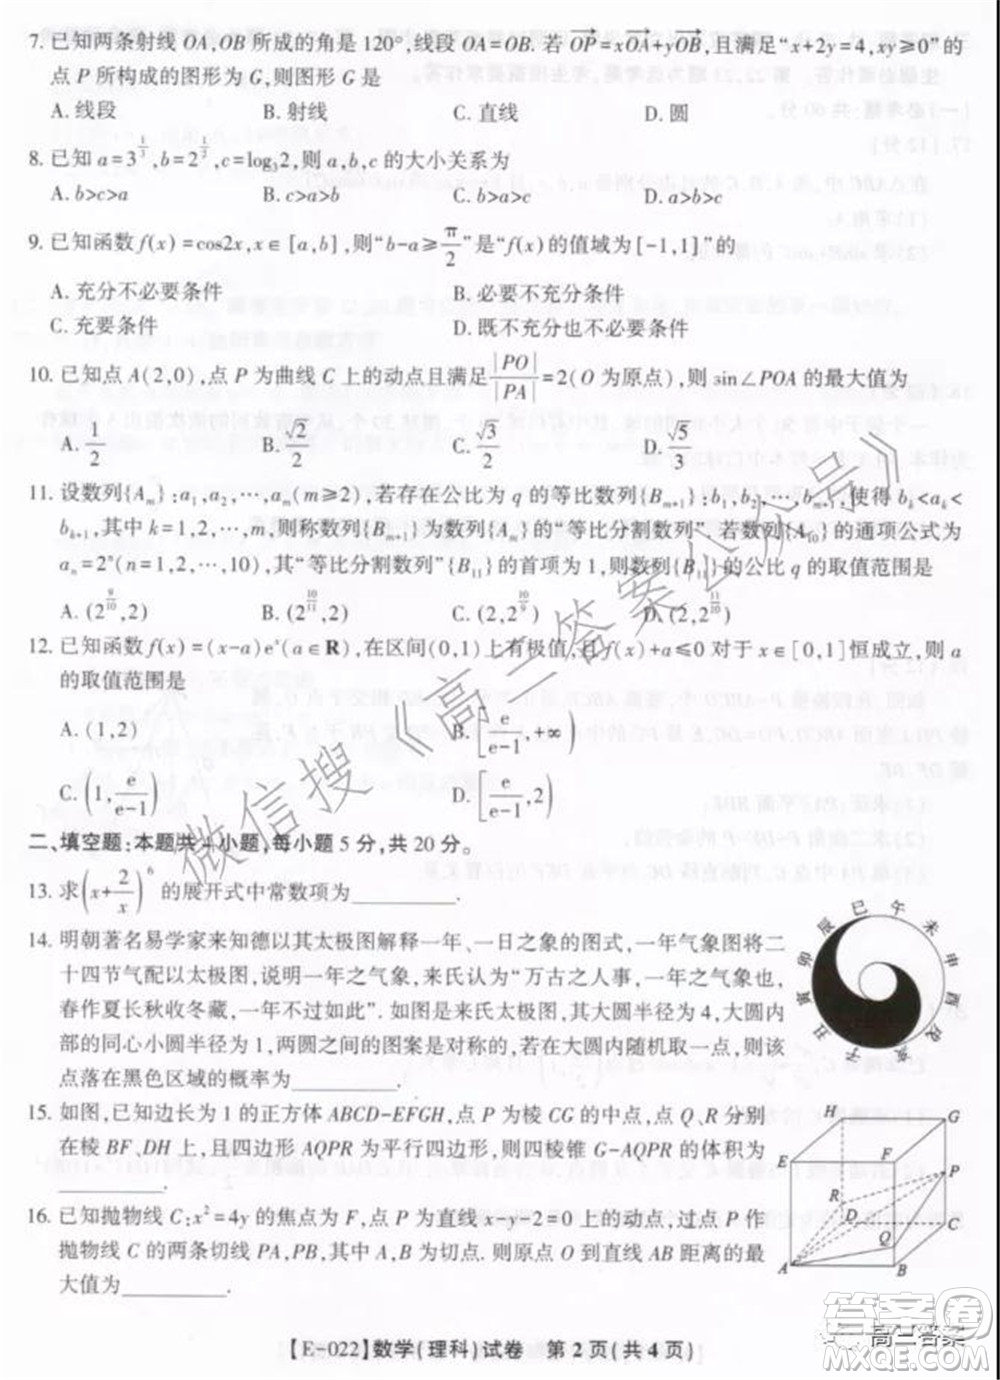 7. 已知两条射线 OA,OB 所成的角是 120°,线段 OA=OB. 若 OP=xOA+yOB,且满足“x+2y=4,xy≥0”的
点 P 所构成的图形为 G,则图形 G 是
A. 线段 B. 射线 C. 直线 D. 圆
8. 已知 a=3^{1/3},b=2^{1/3},c=log₃2,则 a,b,c 的大小关系为
A. b>c>a B. c>a>b C. b>a>c D. a>b>c
9. 已知函数 f(x)=cos2x,x∈[a,b],则“b-a≥π/2”是“f(x)的值域为[-1,1]”的
A. 充分不必要条件 B. 必要不充分条件
C. 充要条件 D. 既不充分也不必要条件
10. 已知点 A(2,0),点 P 为曲线 C 上的动点且满足|PO|/|PA|=2(O 为原点),则 sin∠POA 的最大值为
A. 1/2 B. √2/2 C. √3/2 D. √5/3
11. 设数列{A_m}:a₁,a₂,…,a_m(m≥2),若存在公比为 q 的等比数列{B_{m+1}}:b₁,b₂,…,b_{m+1},使得 b_k<a_k<
b_{k+1},其中 k=1,2,…,m,则称数列{B_{m+1}}为数列{A_m}的“等比分割数列”.若数列{A₁₀}的通项公式为
a_n=2^n(n=1,2,…,10),其“等比分割数列”{B₁₁}的首项为 1,则数列{B₁₁}的公比 q 的取值范围是
A. (2^{9/10},2) B. (2^{10/11},2) C. (2,2^{10/9}) D. (2,2^{11/10})
12. 已知函数 f(x)=(x-a)e^x(a∈R),在区间(0,1)上有极值,且 f(x)+a≤0 对于 x∈[0,1]恒成立,则 a
的取值范围是
A. (1,2) B. [e/(e-1),+∞)
C. (1,e/(e-1)) D. [e/(e-1),2)
二、填空题:本题共 4 小题,每小题 5 分,共 20 分。
13. 求(x+2/x)^6 的展开式中常数项为 .
14. 明朝著名易学家来知德以其太极图解释一年、一日之象的图式,一年气象图将二
十四节气配以太极图,说明一年之气象,来氏认为“万古之人事,一年之气象,
春作夏长秋收冬藏,一年不过如此”. 如图是来氏太极图,其大圆半径为 4,大圆内部
的同心小圆半径为 1,两圆之间的图案是对称的,若在大圆内随机取一点,则该
点落在黑色区域的概率为 .
巳 午 未 申 酉 戌 亥 子 丑 寅 卯 辰
15. 如图,已知边长为 1 的正方体 ABCD-EFGH,点 P 为棱 CG 的中点,点 Q、R 分别
在棱 BF、DH 上,且四边形 AQPR 为平行四边形,则四棱锥 G-AQPR 的体积为
.
H G E F P R D C Q A B
16. 已知抛物线 C:x²=4y 的焦点为 F,点 P 为直线 x-y-2=0 上的动点,过点 P 作
抛物线 C 的两条切线 PA,PB,其中 A、B 为切点. 则原点 O 到直线 AB 距离的最
大值为 .
【E-022】数学(理科)试卷 第 2 页(共 4 页)
微信搜《高三答案公众号》
高三答案
答案圈
MXQE.COM